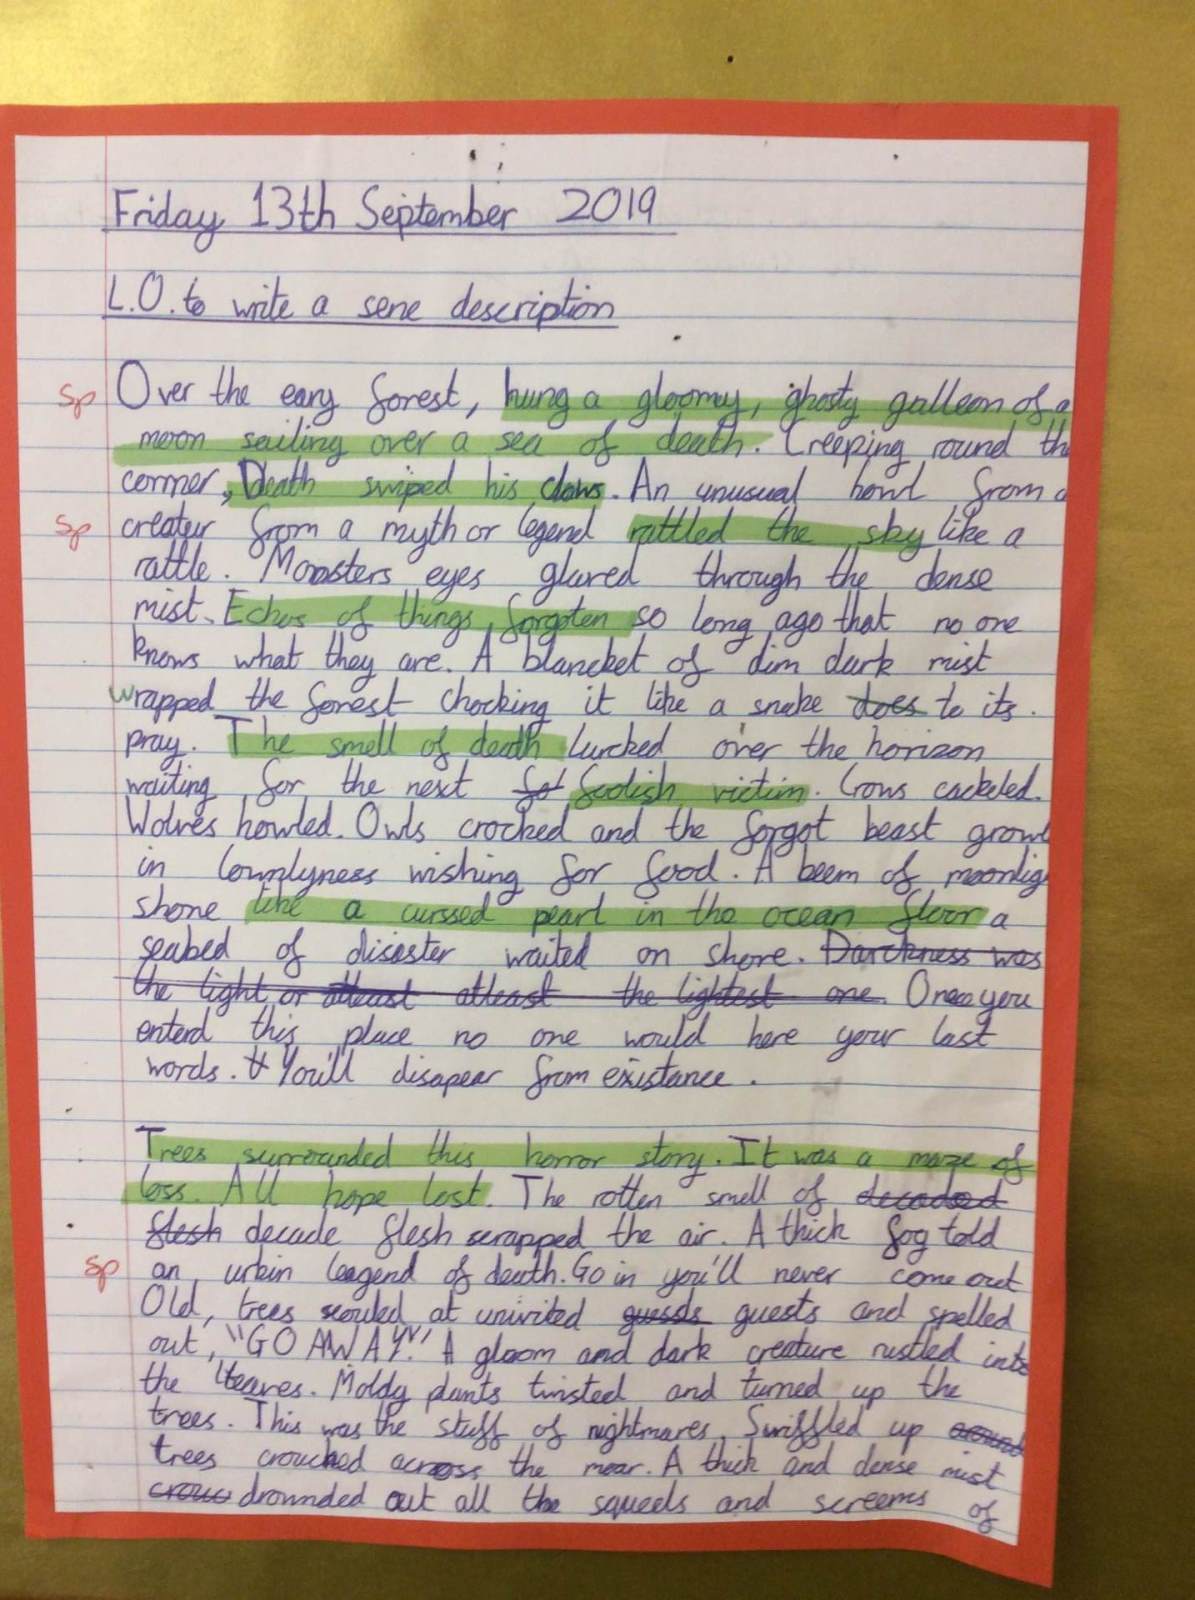 Friday 13th September 2019
L.O. to write a sene description
Sp Over the eary forest, hung a gloomy, ghosty galleon of a
moon sailing over a sea of death. Creeping round th
corner, Death swiped his claws. An unusual howl from a
Sp creater from a myth or legend rattled the sky like a
rattle. Monsters eyes glared through the dense
mist. Echos of things forgoten so long ago that no one
knows what they are. A blancket of dim dark mist
wrapped the forest chocking it like a snake does to its
pray. The smell of death lurcked over the horizon
waiting for the next fot foolish victim. Crows cackeled.
Wolves howled. Owls crocked and the forgot beast growl
in lownlyness wishing for food. A beem of moonlig
shone like a curssed pearl in the ocean floor a
seabed of disaster waited on shore. Darckness was
the light or atleast atleast the lightest one. Once you
enterd this place no one would here your last
words. You'll disapear from existance.
Trees surrounded this horror story. It was a maze of
loss. All hope lost. The rotten smell of decaded
flesh decade flesh scrapped the air. A thick fog told
Sp an urbin leagend of death. Go in you'll never come out
Old, trees scouled at univited guessts guests and spelled
out, "GO AWAY!" A gloom and dark creature rustled into
the leaves. Moldy plants twisted and turned up the
trees. This was the stuff of nightmares. Swiffled up
trees crouched across the moar. A thick and dense mist
crouc drownded out all the squeels and screems of